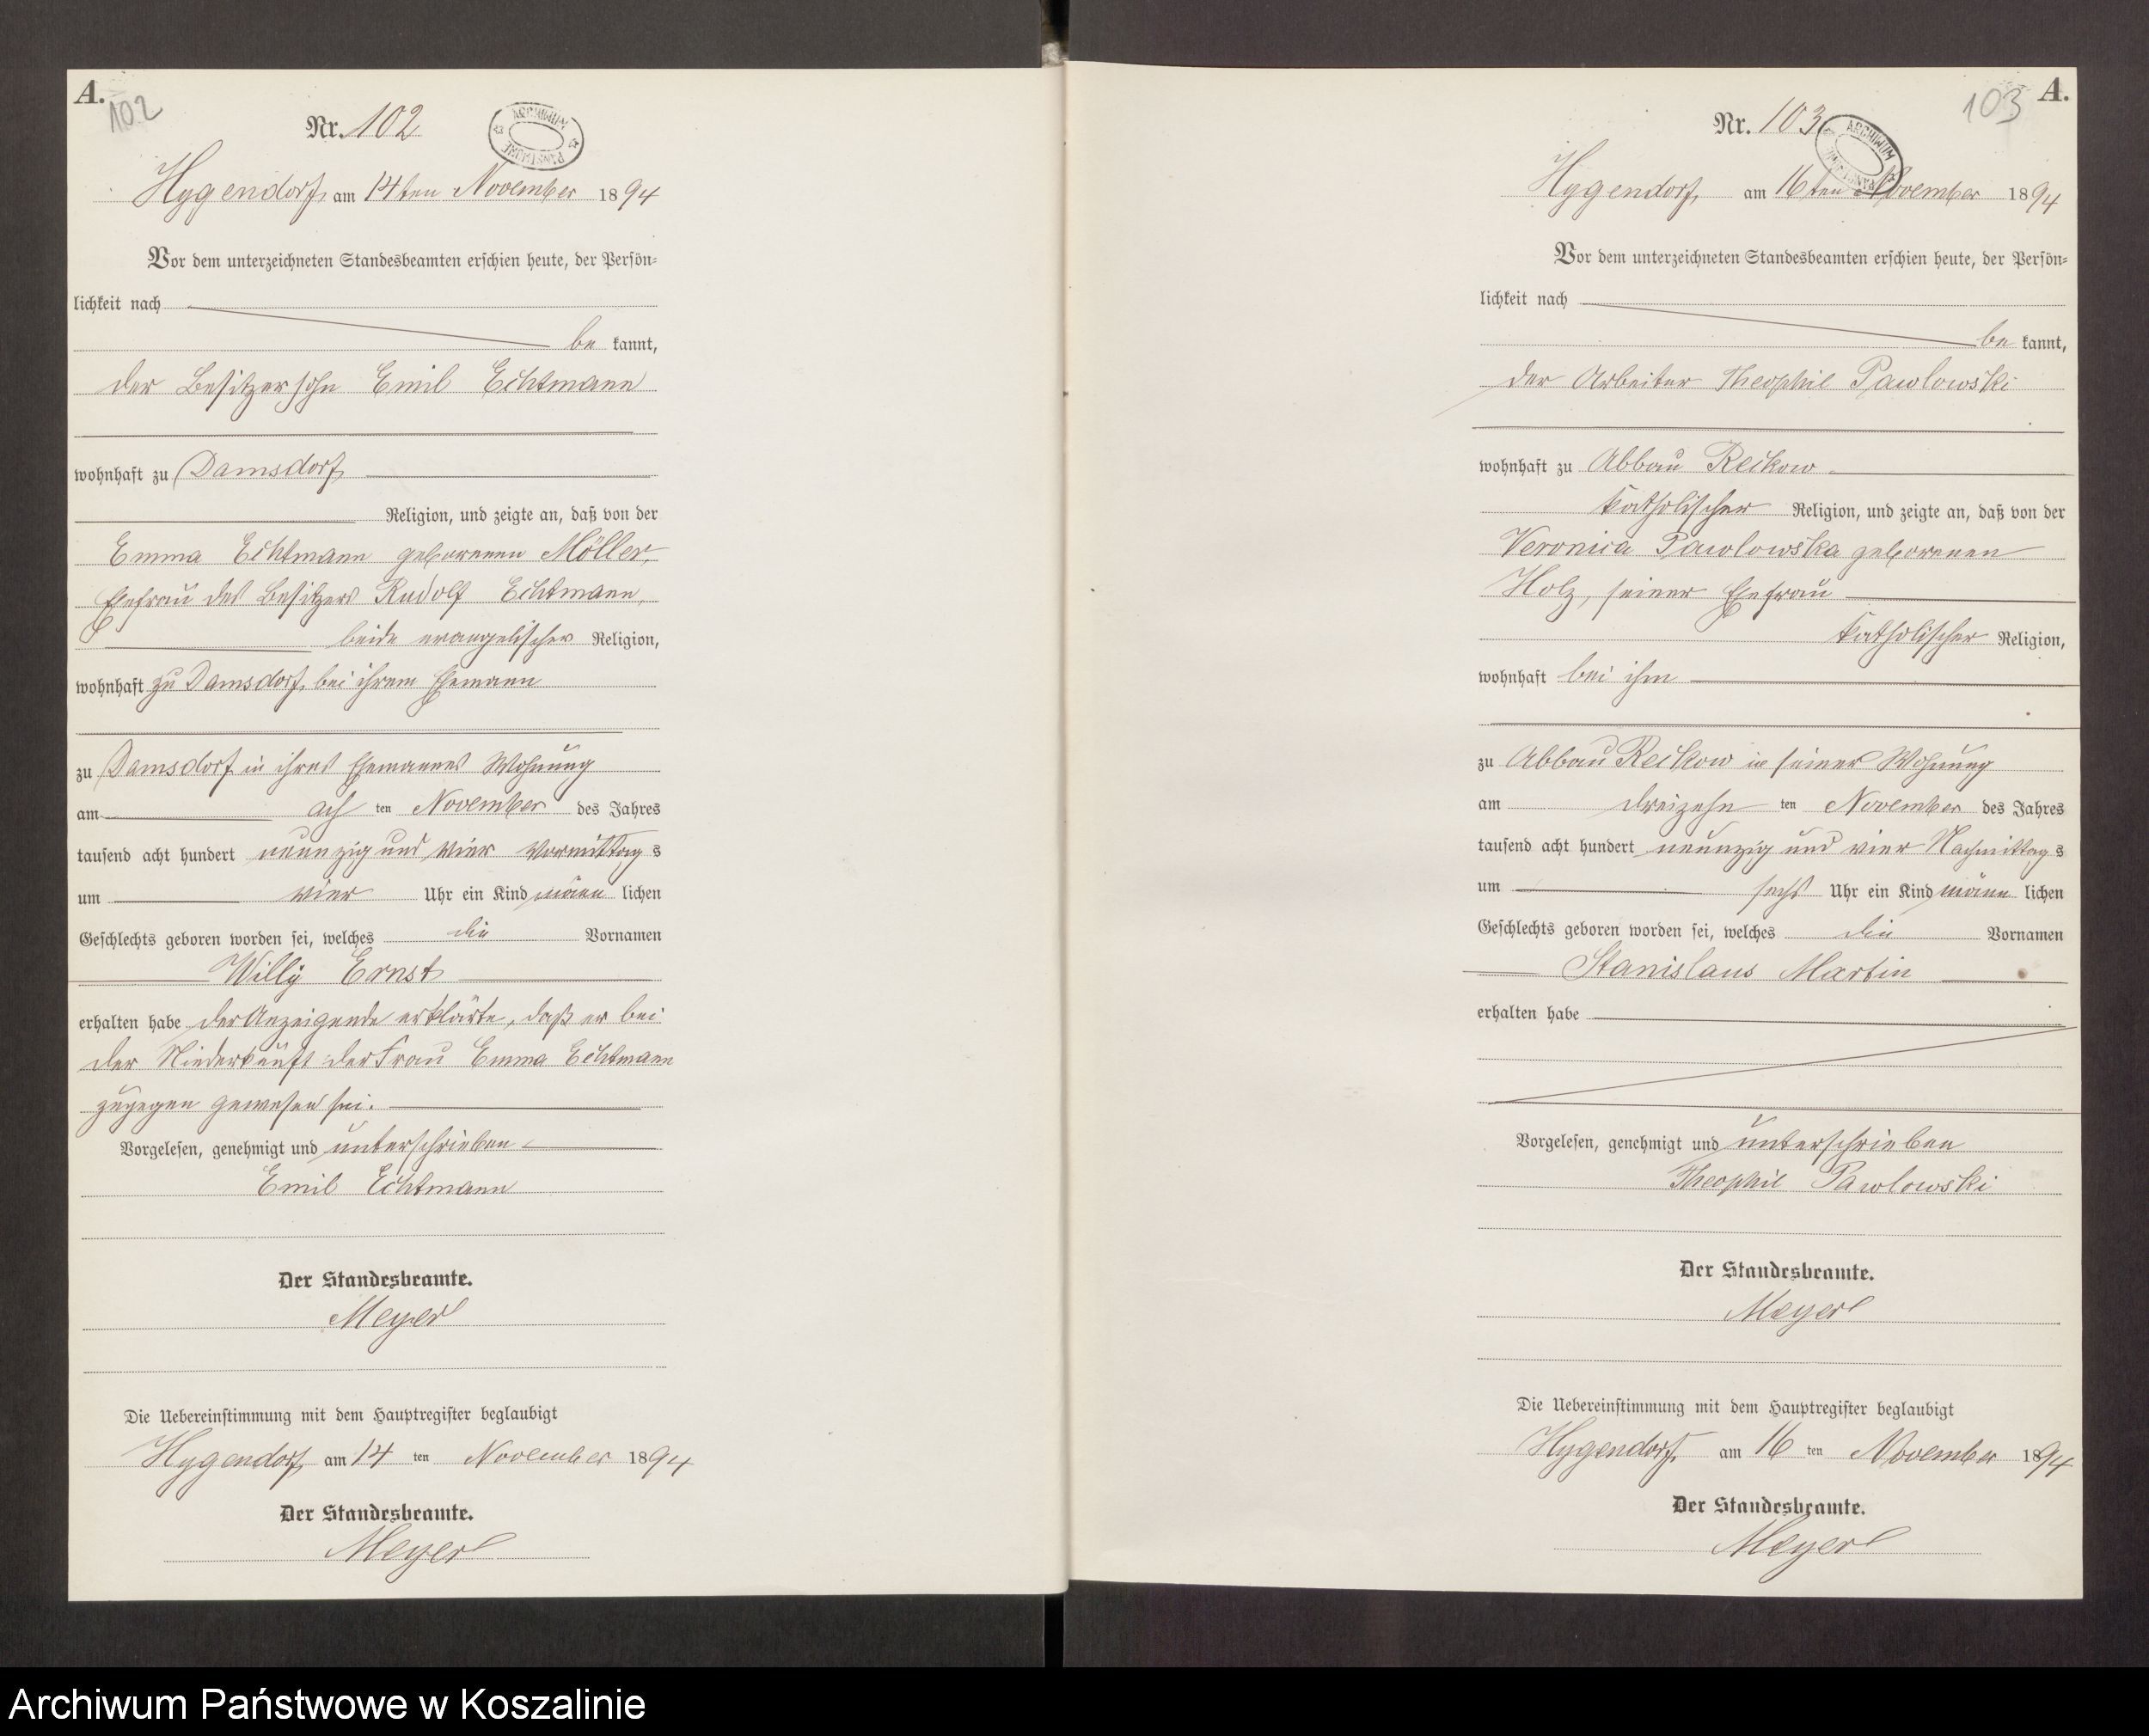 A.
102
Nr. 102
ARCHIWUM PAŃSTWOWE
Hygendorf, am 14ten November 1894
Vor dem unterzeichneten Standesbeamten erschien heute, der Persön-
lichkeit nach
be kannt,
der Besitzersohn Emil Echtmann
wohnhaft zu Damsdorf
Religion, und zeigte an, daß von der
Emma Echtmann geborenen Möller,
Ehefrau des Besitzers Rudolf Echtmann,
beide evangelischer Religion,
wohnhaft zu Damsdorf, bei ihrem Ehemann
zu Damsdorf in ihres Ehemannes Wohnung
am ach ten November des Jahres
tausend acht hundert neunzig und vier Vormittag s
um vier Uhr ein Kind männ lichen
Geschlechts geboren worden sei, welches die Vornamen
Willy Ernst
erhalten habe der Anzeigende erklärte, daß er bei
der Niederkunft der Frau Emma Echtmann
zugegen gewesen sei.
Vorgelesen, genehmigt und unterschrieben
Emil Echtmann
Der Standesbeamte.
Meyer
Die Uebereinstimmung mit dem Hauptregister beglaubigt
Hygendorf, am 14 ten November 1894
Der Standesbeamte.
Meyer
A.
103
Nr. 103
ARCHIWUM PAŃSTWOWE
Hygendorf, am 16ten November 1894
Vor dem unterzeichneten Standesbeamten erschien heute, der Persön-
lichkeit nach
be kannt,
der Arbeiter Theophil Pawlowski
wohnhaft zu Abbau Reckow
katholischer Religion, und zeigte an, daß von der
Veronica Pawlowska geborenen
Holz, seiner Ehefrau
katholischer Religion,
wohnhaft bei ihm
zu Abbau Reckow in seiner Wohnung
am dreizehn ten November des Jahres
tausend acht hundert neunzig und vier Nachmittag s
um sechs Uhr ein Kind männ lichen
Geschlechts geboren worden sei, welches die Vornamen
Stanislaus Martin
erhalten habe
Vorgelesen, genehmigt und unterschrieben
Theophil Pawlowski
Der Standesbeamte.
Meyer
Die Uebereinstimmung mit dem Hauptregister beglaubigt
Hygendorf, am 16 ten November 1894
Der Standesbeamte.
Meyer
Archiwum Państwowe w Koszalinie